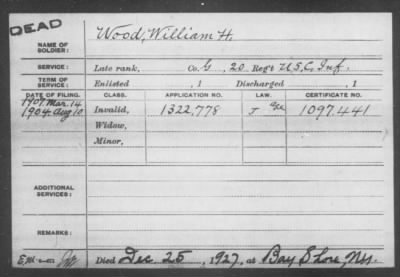 DEAD
NAME OF SOLDIER: Wood, William H.
SERVICE: Late rank, Co. G, 20 Reg't U.S.C. Inf.
TERM OF SERVICE: Enlisted , 1 Discharged , 1
DATE OF FILING. CLASS. APPLICATION NO. LAW. CERTIFICATE NO.
1907. Mar. 14
1904. Aug 10 Invalid, 1322,778 J Age 1097.441
Widow,
Minor,
ADDITIONAL SERVICES:
REMARKS:
Died Dec 25, 1927, at Bay Shore, N.Y.